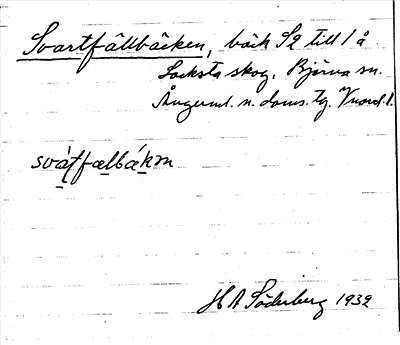 Svartfällbäcken, bäck S2 till 1 å
Locksta skog. Björna sn.
Ångerml. n. doms. tg. Vnorrl. l.
svàtfælbákɱ
H A Söderberg 1932